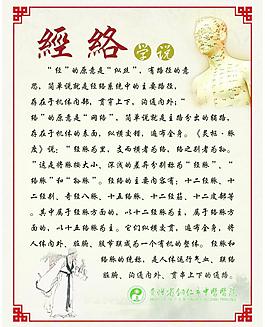 經絡学说
"经"的原意是"纵丝",有路径的意
思,简单说就是经络系统中的主要路径,
存在于机体内部,贯穿上下,沟通内外;"
络"的原意是"网络",简单说就是主路分出的辅路,
存在于机体的表面,纵横交错,遍布全身。《灵枢·脉
度》说:"经脉为里,支而横者为络,络之别者为孙。
"这是将脉按大小、深浅的差异分别称为"经脉"、"
络脉"和"孙脉"。经络的主要内容有:十二经脉、十二
经别、奇经八脉、十五络脉、十二经筋、十二皮部等
。其中属于经脉方面的,以十二经脉为主,属于络脉方
面的,以十五络脉为主。它们纵横交贯,遍布全身,将
人体内外、脏腑、肢节联成为一个有机的整体。经脉和
络脉的统称,是人体运行气血、联络
脏腑、沟通内外、贯串上下的通路。